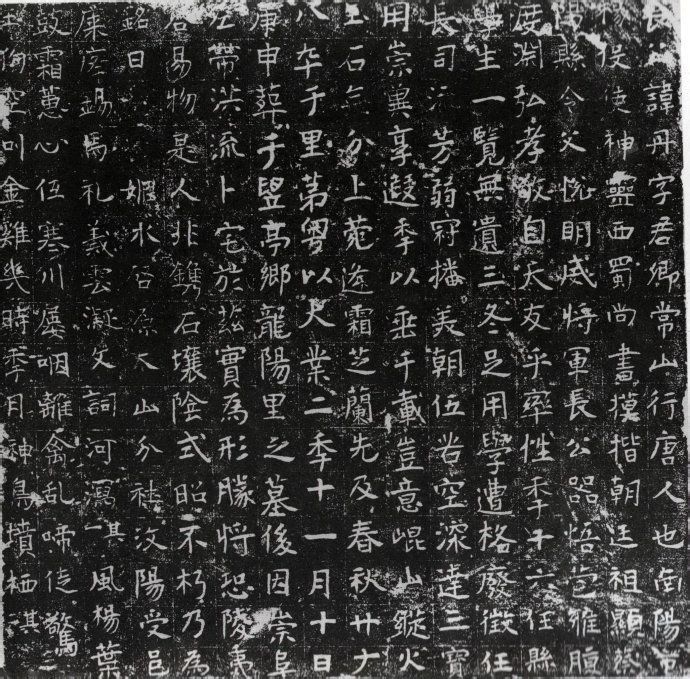 諱丹字君卿常山行唐人也南陽市
侯使神靈西蜀尚書模楷朝廷祖顯蔡
陽縣令父悦明威將軍長公器悟苞雄
度渊弘孝敬自天友乎率性季十六任縣
學生一覽無遺三冬足用學遭格廢徵任
長司流芳弱冠播美朝伍若空深達三寶
用崇冀享遐季以垂千載豈意崐山縱火
玉石无分上苑逢霜芝蘭先及春秋廿六
八卒于里第粤以大業二季十一月十日
庚申葬于豎亭鄉龍陽里之墓後因崇阜
左帶洪流卜宅於兹實為形勝將恐陵夷
居易物是人非鐫石壤陰式昭不朽乃為
銘曰 媯水啓源大山分祉汶陽受邑
錫馬礼義雲凝文詞河寫其一風楊葉
鼓霜蕙心伍寒川屡咽離禽乱啼徒驚
狗空叫金雞幾時季月神鳥墳栖其二